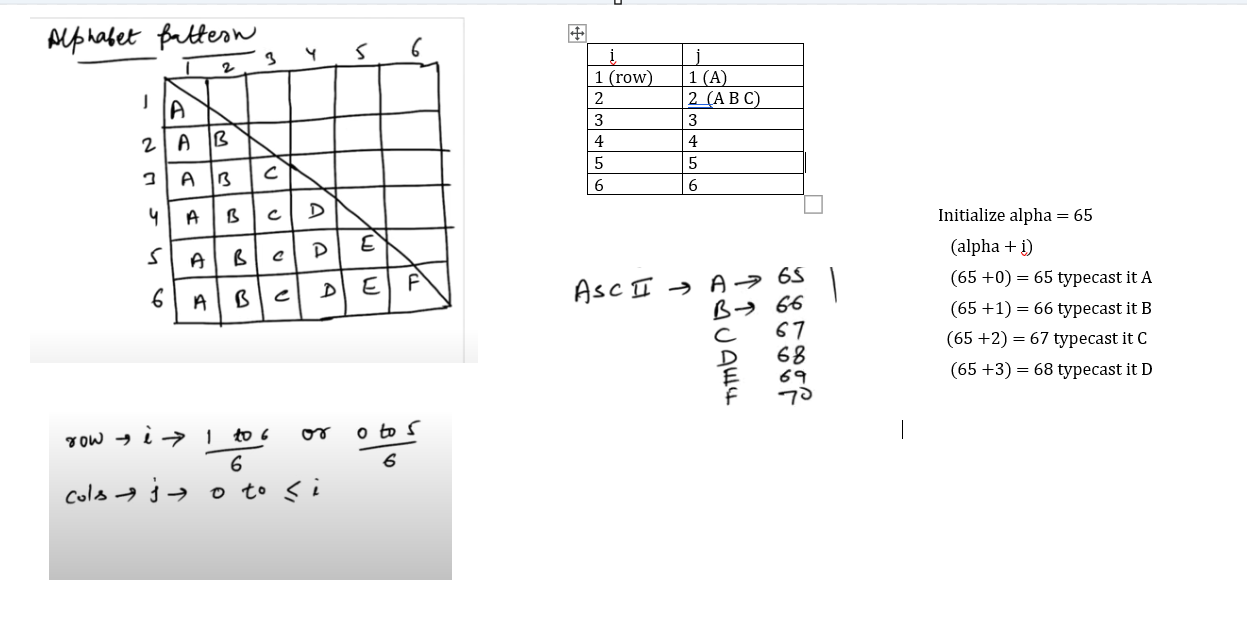 Alphabet Pattern
1 2 3 4 5 6
1 A
2 A B
3 A B C
4 A B C D
5 A B C D E
6 A B C D E F
row → i → 1 to 6 or 0 to 5
6 6
Cols → j → 0 to ≤ i
i j
1 (row) 1 (A)
2 2 (A B C)
3 3
4 4
5 5
6 6
ASC II → A → 65
B → 66
C 67
D 68
E 69
F 70
Initialize alpha = 65
(alpha + i)
(65 +0) = 65 typecast it A
(65 +1) = 66 typecast it B
(65 +2) = 67 typecast it C
(65 +3) = 68 typecast it D